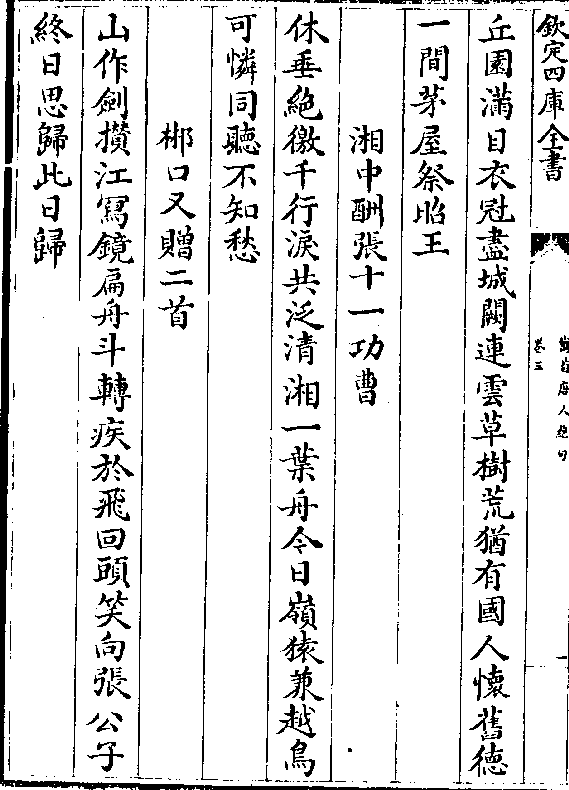 欽定四庫全書
卷三
丘園滿目衣冠盡城闕連雲草樹荒猶有國人懷舊德
一間茅屋祭昭王
湘中酬張十一功曹
休垂絶徼千行淚共泛清湘一葉舟今日嶺猿兼越鳥
可憐同聽不知愁
郴口又贈二首
山作劍攢江寫鏡扁舟斗轉疾於飛回頭笑向張公子
終日思歸此日歸